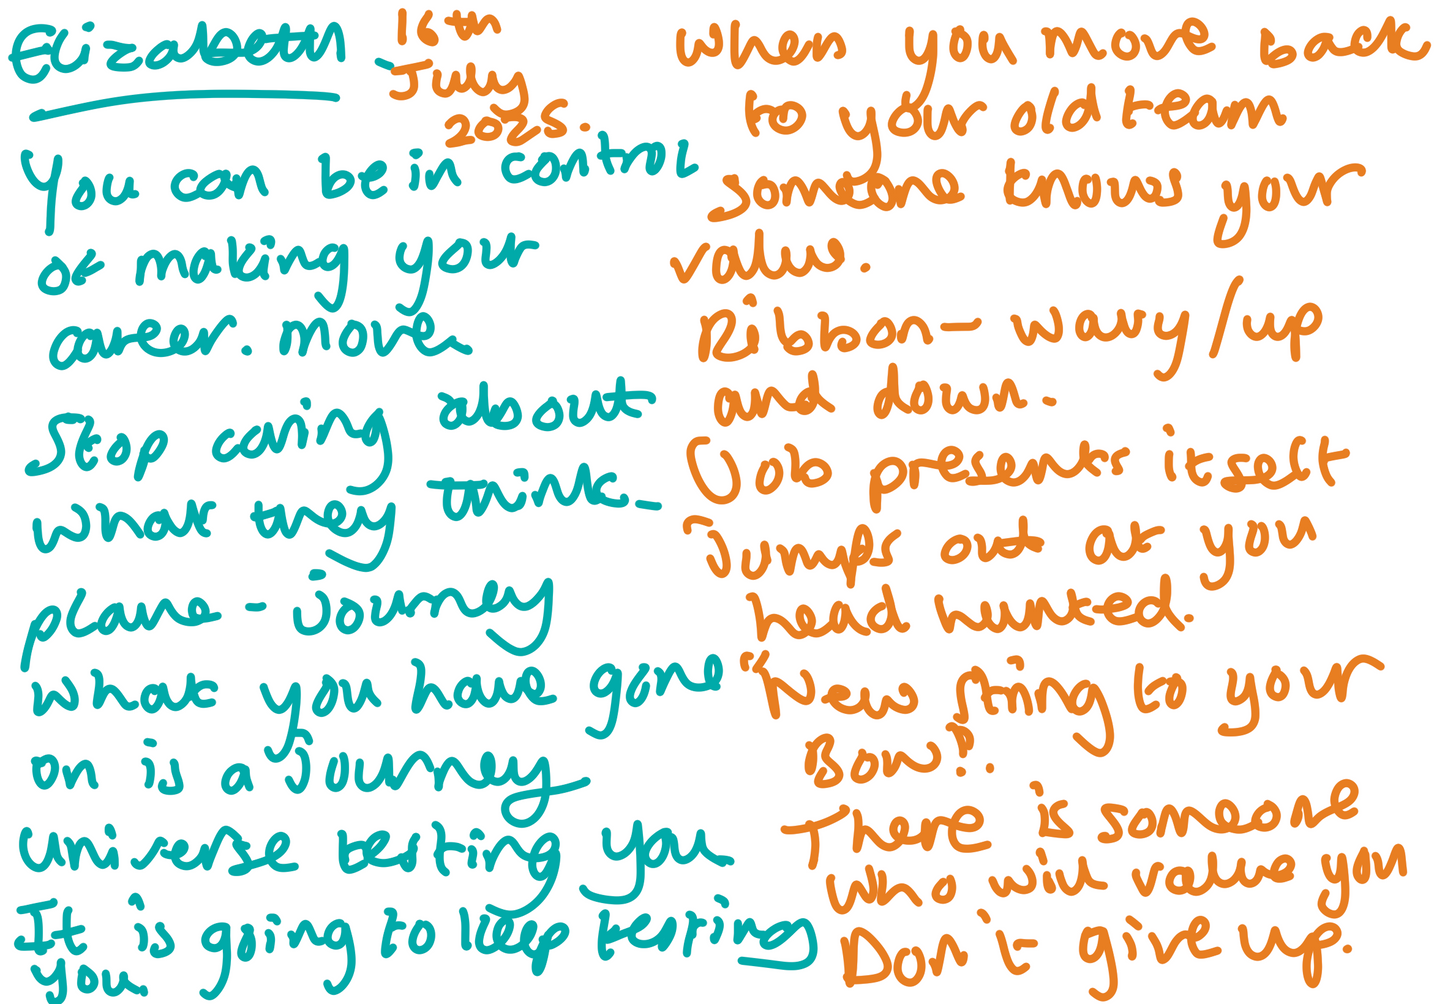 Elizabeth
16th
July
2025.
You can be in control
of making your
career. move
Stop caring about
what they think_
plane - journey
what you have gone
on is a journey
universe testing you
It is going to keep testing
you.
When you move back
to your old team
someone knows your
value.
Ribbon - wavy/up
and down.
Job presents itself
Jumps out at you
head hunted.
"New string to your
Bow".
There is someone
who will value you
Don't give up.